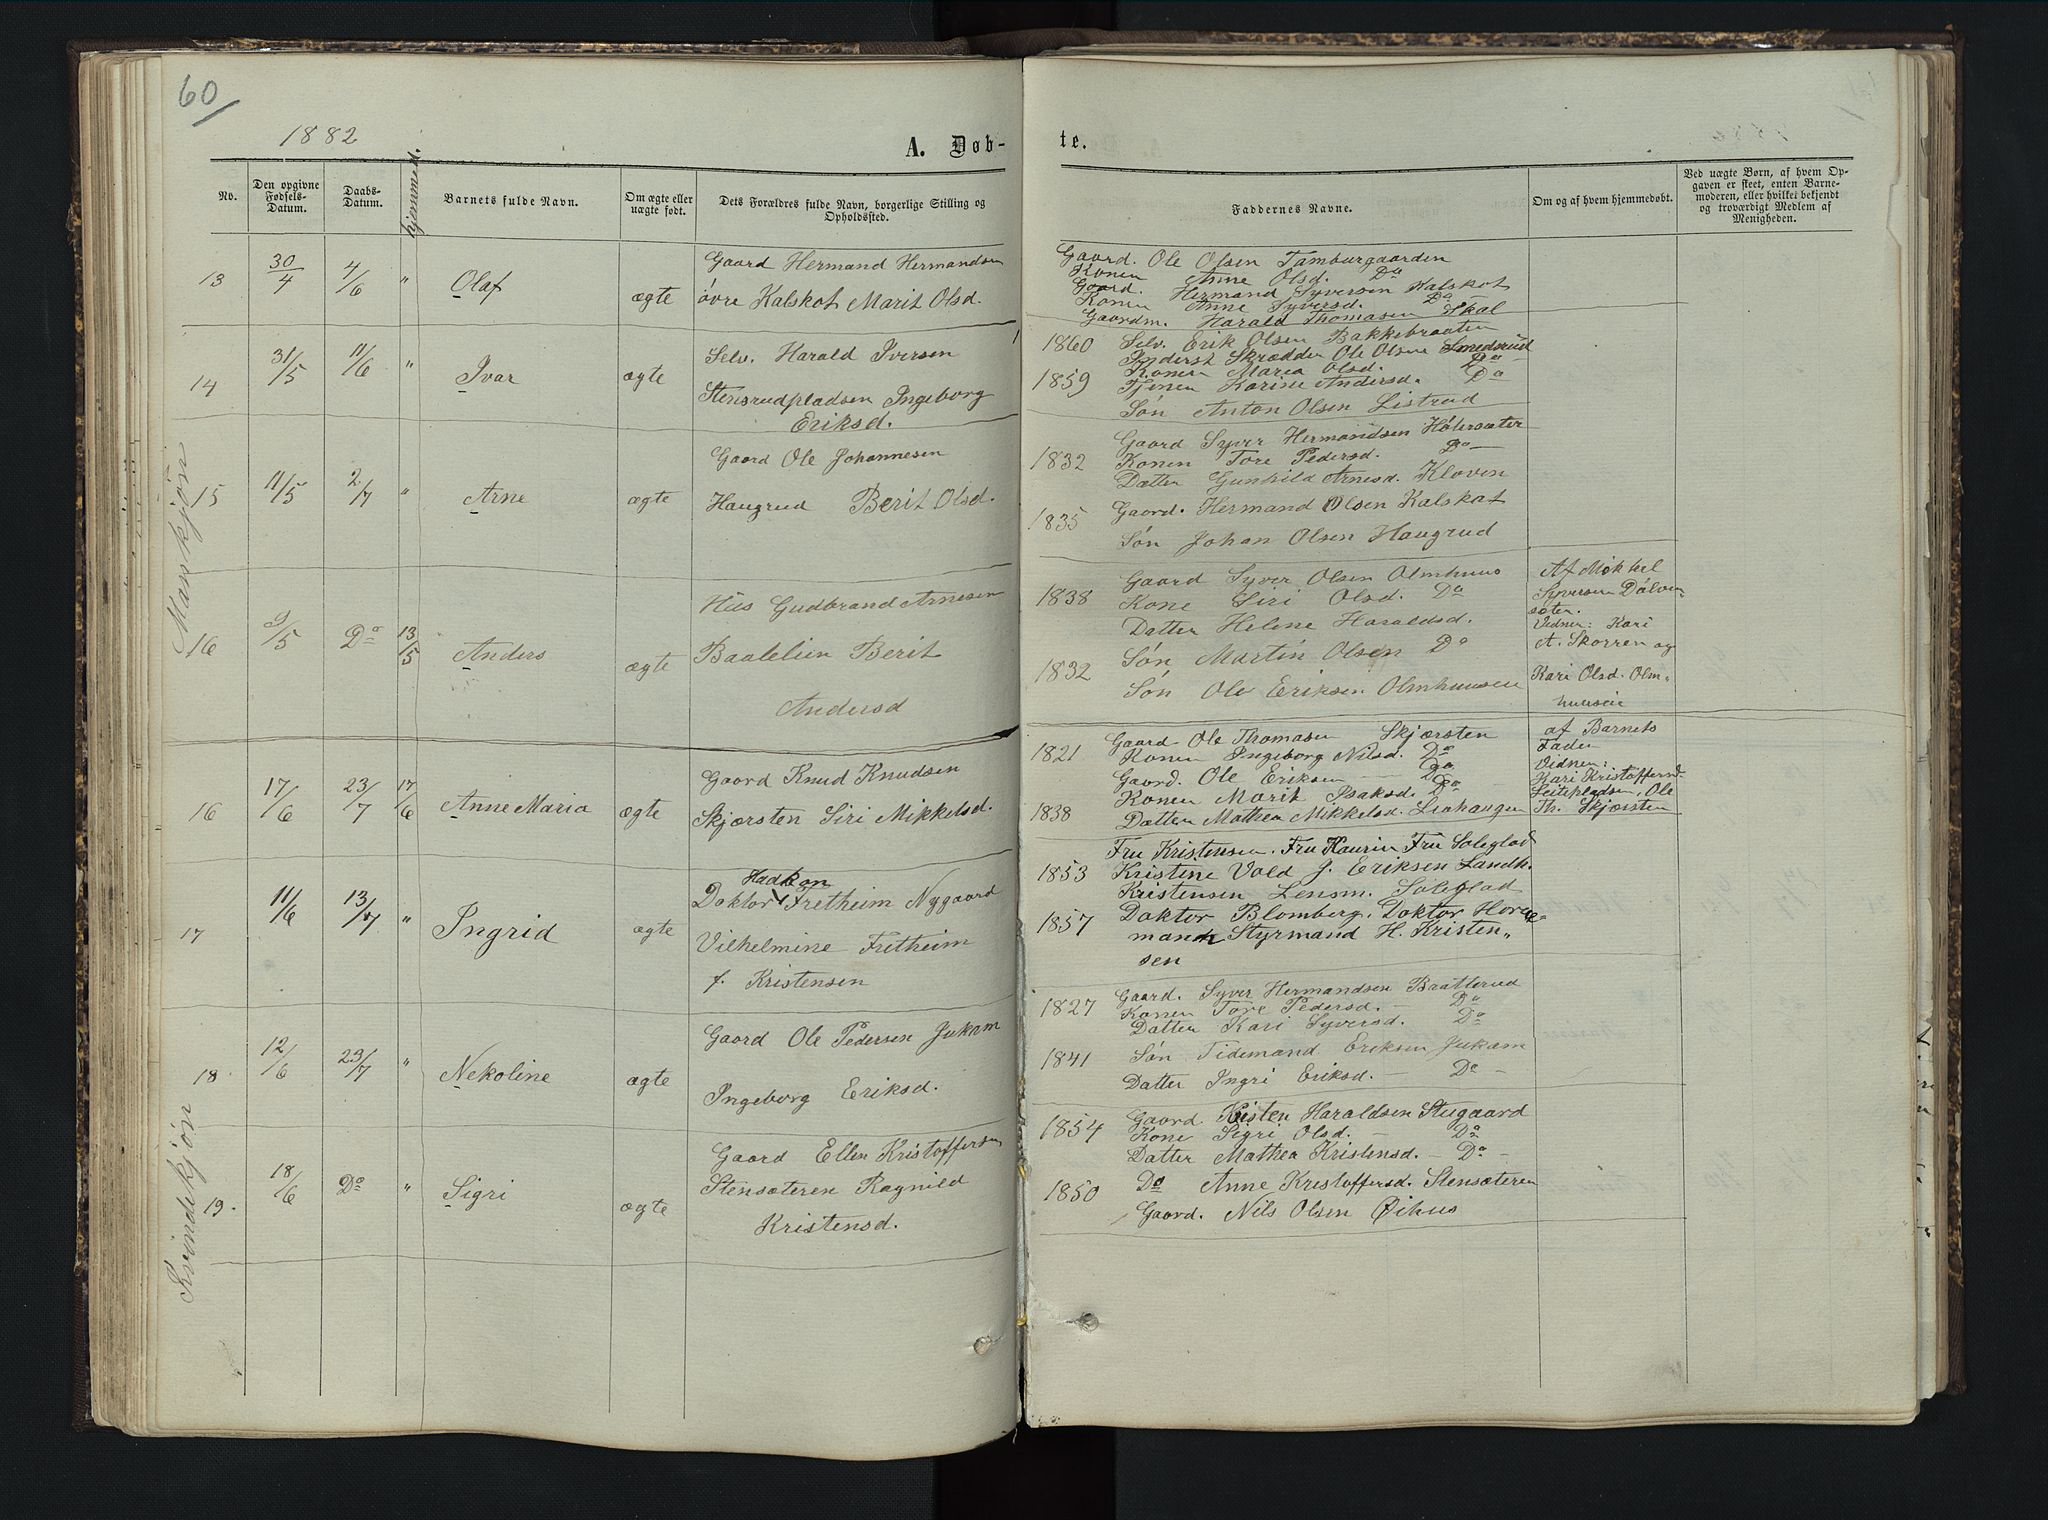 60
1882
A. Døb-
te.
No.
Den opgivne Fødsels-Datum.
Daabs-Datum.
hjemmed.
Barnets fulde Navn.
Om ægte eller uægte født.
Dets Forældres fulde Navn, borgerlige Stilling og Opholdssted.
Faddernes Navne.
Om og af hvem hjemmedøbt.
Ved uægte Børn, af hvem Op-
gaven er skeet, enten Barne-
moderen, eller hvilket bekjendt
og troværdigt Medlem af
Menigheden.
Manskjøn
13 30/4 4/6 " Olaf ægte
Gaard Hermand Hermandsen
øvre Kalskot Marit Olsd.
Gaard. Ole Olsen Tamburgaarden
Konen Anne Olsd. Do
Gaard. Hermand Syversen Kalskot
Konen Anne Syversd. Do
Gaardm. Harald Thomasen Skal
14 31/5 11/6 " Ivar ægte
Selv. Harald Iversen
Stensrudpladsen Ingeborg
Eriksd.
1860
1859
Selv. Erik Olsen Bakkebraaten
Inderst Skrædder Ole Olsen Smedsrud
Konen Marea Olsd. Do
Tjenen Karine Andersd. Do
Søn Anton Olsen Listrud
15 11/5 2/7 " Arne ægte
Gaard Ole Johannesen
Haugrud Berit Olsd.
1832
1835
Gaard Syver Hermandsen Hølersæter
Konen Tore Pedersd. Do —
Datter Gunhild Arnesd. Kloven
Gaard. Hermand Olsen Kalskot
Søn Johan Olsen Haugrud
16 9/5 Do 13/5 Anders ægte
Hus Gudbrand Arnesen
Baalelien Berit
Andersd
1838
1832
Gaard Syver Olsen Olmhuus
Kone Siri Olsd. Do
Datter Helene Haraldsd.
Søn Martin Olsen Do
Søn Ole Eriksen Olmhuusen
Af Mikkel
Syversen Dølven-
sæten.
Vidner: Kari
A. Skorren og
Kari Olsd. Olm-
huuseie
16 17/6 23/7 17/6 Anne Maria ægte
Gaard Knud Knudsen
Skjærsten Siri Mikkelsd.
1821
1838
Gaard Ole Thomasen Skjærsten
Konen Ingeborg Nilsd. Do
Gaard. Ole Eriksen — Do
Konen Marit Isaksd. Do
Datter Mathea Mikkelsd. Liahaugen
af Barnets
Fader
Vidner:
Kari Kristoffersd.
Leitepladsen, Ole
Th. Skjærsten
17 11/6 13/7 " Ingrid ægte
Haakon
Doktor Fretheim Nygaard
Vilhelmine Fretheim
f. Kristensen
1853
1857
Fru Kristensen. Fru Kaurin Fru Soleglad
Kristine Vold J. Eriksen Landh.
Kristensen Lensm. Soleglad
Doktor Blomberg. Doktor Horne-
mann Styrmand H. Kristen-
sen
Kvindekjøn
18. 12/6 23/7 " Nekoline ægte
Gaard Ole Pedersen Jukam
Ingeborg Eriksd.
1827
1841
Gaard. Syver Hermandsen Bratterud
Konen Tore Pedersd. — Do
Datter Kari Syversd. Do
Søn Tidemand Eriksen Jukam
Datter Ingri Eriksd. — Do -
19. 18/6 Do " Sigri ægte
Gaard Ellen Kristoffersen
Stensæteren Ragnild
Kristensd.
1854
1850
Gaard. Kristen Haraldsen Stugaard
Kone Sigri Olsd. — Do
Datter Mathea Kristensd. — Do -
Do Anne Kristoffersd. Stensæteren
Gaard. Nils Olsen Øihus